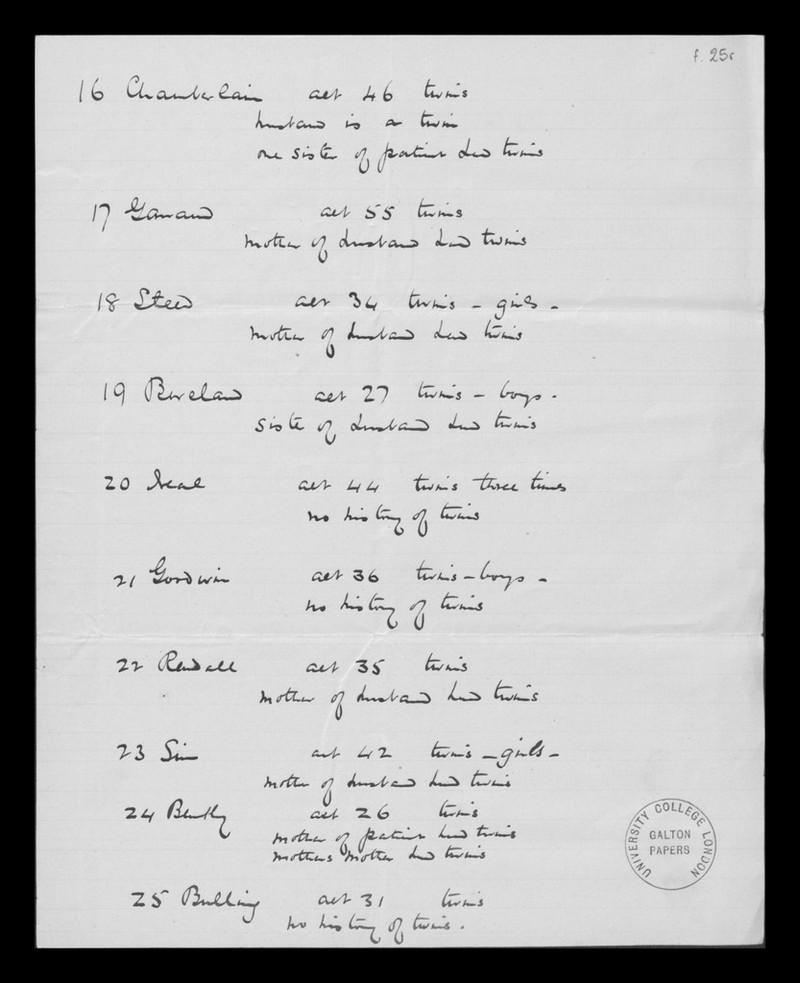 f. 25r
16 Chamberlain aet 46 twins
husband is a twin
one sister of patient had twins
17 aet 55 twins
mother of husband had twins
18 Steed aet 34 twins - girls -
mother of husband had twins
19 aet 27 twins - boys -
sister of husband had twins
20 Neal aet 44 twins three times
no history of twins
21 Goodwin aet 36 twins - boys -
no history of twins
22 Rendall aet 35 twins
mother of husband had twins
23 Sim aet 42 twins - girls -
mother of husband had twins
24 Bently aet 26 twins
mother of patient had twins
mothers mother had twins
25 Bulling aet 31 twins
no history of twins.
UNIVERSITY COLLEGE LONDON
GALTON
PAPERS